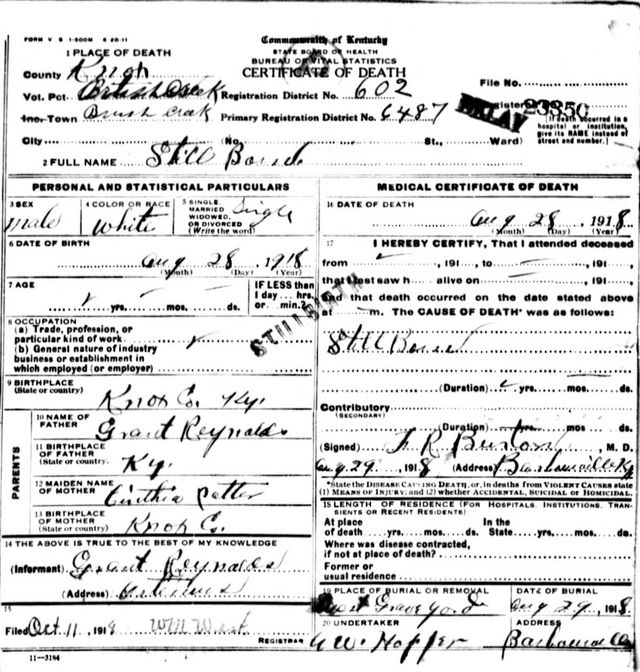 FORM V S 1-500M 6 20-11
Commonwealth of Kentucky
STATE BOARD OF HEALTH
BUREAU OF VITAL STATISTICS
CERTIFICATE OF DEATH
1 PLACE OF DEATH
County Knox
Vot. Pct. Brush Creek Registration District No. 602 File No.
Inc. Town Brush Creek Primary Registration District No. 6487 Registered 23350
DELAY
City (No. St., Ward)
[If death occurred in a hospital or institution, give its NAME instead of street and number.]
2 FULL NAME Still Bornd
PERSONAL AND STATISTICAL PARTICULARS
3 SEX male
4 COLOR OR RACE White
5 SINGLE, MARRIED, WIDOWED, OR DIVORCED (Write the word) Single
6 DATE OF BIRTH
Aug 28, 1918
(Month) (Day) (Year)
7 AGE
yrs. mos. ds.
IF LESS than 1 day... hrs. or min.?
8 OCCUPATION
(a) Trade, profession, or particular kind of work
(b) General nature of industry business or establishment in which employed (or employer)
STILLBIRTH
9 BIRTHPLACE (State or country) Knox Co. Ky.
PARENTS
10 NAME OF FATHER Grant Reynolds
11 BIRTHPLACE OF FATHER (State or country. Ky.
12 MAIDEN NAME OF MOTHER Cinthia
13 BIRTHPLACE OF MOTHER (State or country) Knox Co.
14 THE ABOVE IS TRUE TO THE BEST OF MY KNOWLEDGE
(Informant) Grant Reynolds
(Address) Artemus
15
Filed Oct 11, 1918 Will West
REGISTRAR
11-3184
MEDICAL CERTIFICATE OF DEATH
16 DATE OF DEATH
Aug 28, 1918
(Month) (Day) (Year)
17 I HEREBY CERTIFY, That I attended deceased
from , 191 , to , 191 ,
that I last saw h alive on , 191 ,
and that death occurred on the date stated above
at m. The CAUSE OF DEATH* was as follows:
Still Bornd
(Duration) yrs. mos. ds.
Contributory
(SECONDARY)
(Duration) yrs. mos. ds.
(Signed) R Burton, M. D.
Aug 29, 1918 (Address) Barbourville Ky
*State the DISEASE CAUSING DEATH, or, in deaths from VIOLENT CAUSES state (1) MEANS OF INJURY; and (2) whether ACCIDENTAL, SUICIDAL OR HOMICIDAL.
18 LENGTH OF RESIDENCE (FOR HOSPITALS, INSTITUTIONS, TRANSIENTS OR RECENT RESIDENTS)
At place of death yrs. mos. ds. In the State yrs. mos. ds.
Where was disease contracted, if not at place of death?
Former or usual residence
19 PLACE OF BURIAL OR REMOVAL Grave yard
DATE OF BURIAL Aug 29, 1918
20 UNDERTAKER G W. Hopper
ADDRESS Barbourville